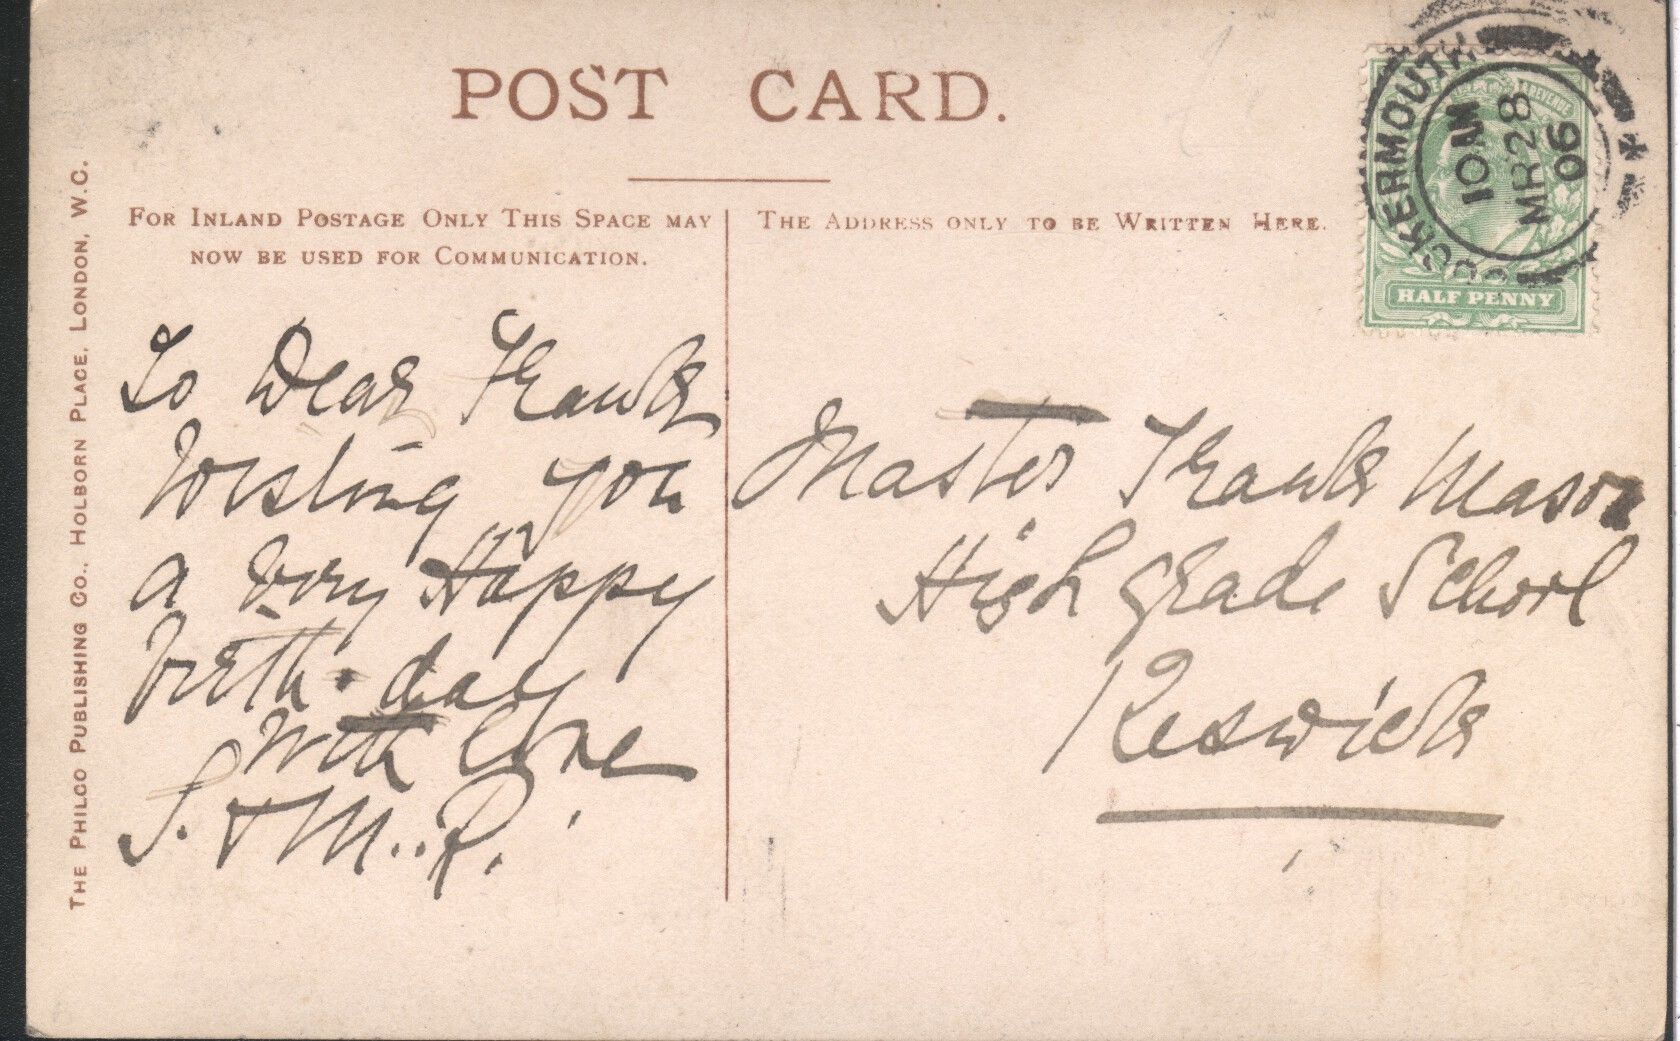 POST CARD.
FOR INLAND POSTAGE ONLY THIS SPACE MAY
NOW BE USED FOR COMMUNICATION.
THE ADDRESS ONLY TO BE WRITTEN HERE.
THE PHILCO PUBLISHING CO., HOLBORN PLACE, LONDON, W.C.
COCKERMOUTH
10 AM
MR 28
06
REVENUE
HALF PENNY
To Dear Frank
Wishing you
a very Happy
birth-day
with love
S. & M. R.
Master Frank Mason
High grade School
Keswick